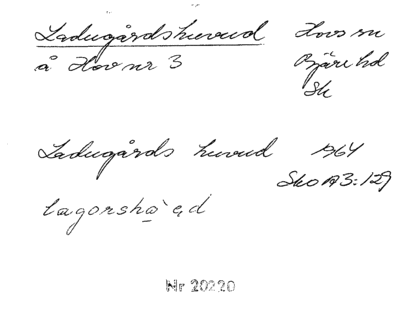 Ladugårdshuvud Hovs sn
å Hov nr 3 Bjäre hd
Sk
Ladugårds huvud 1964
Sko A3:129
Nr 20220